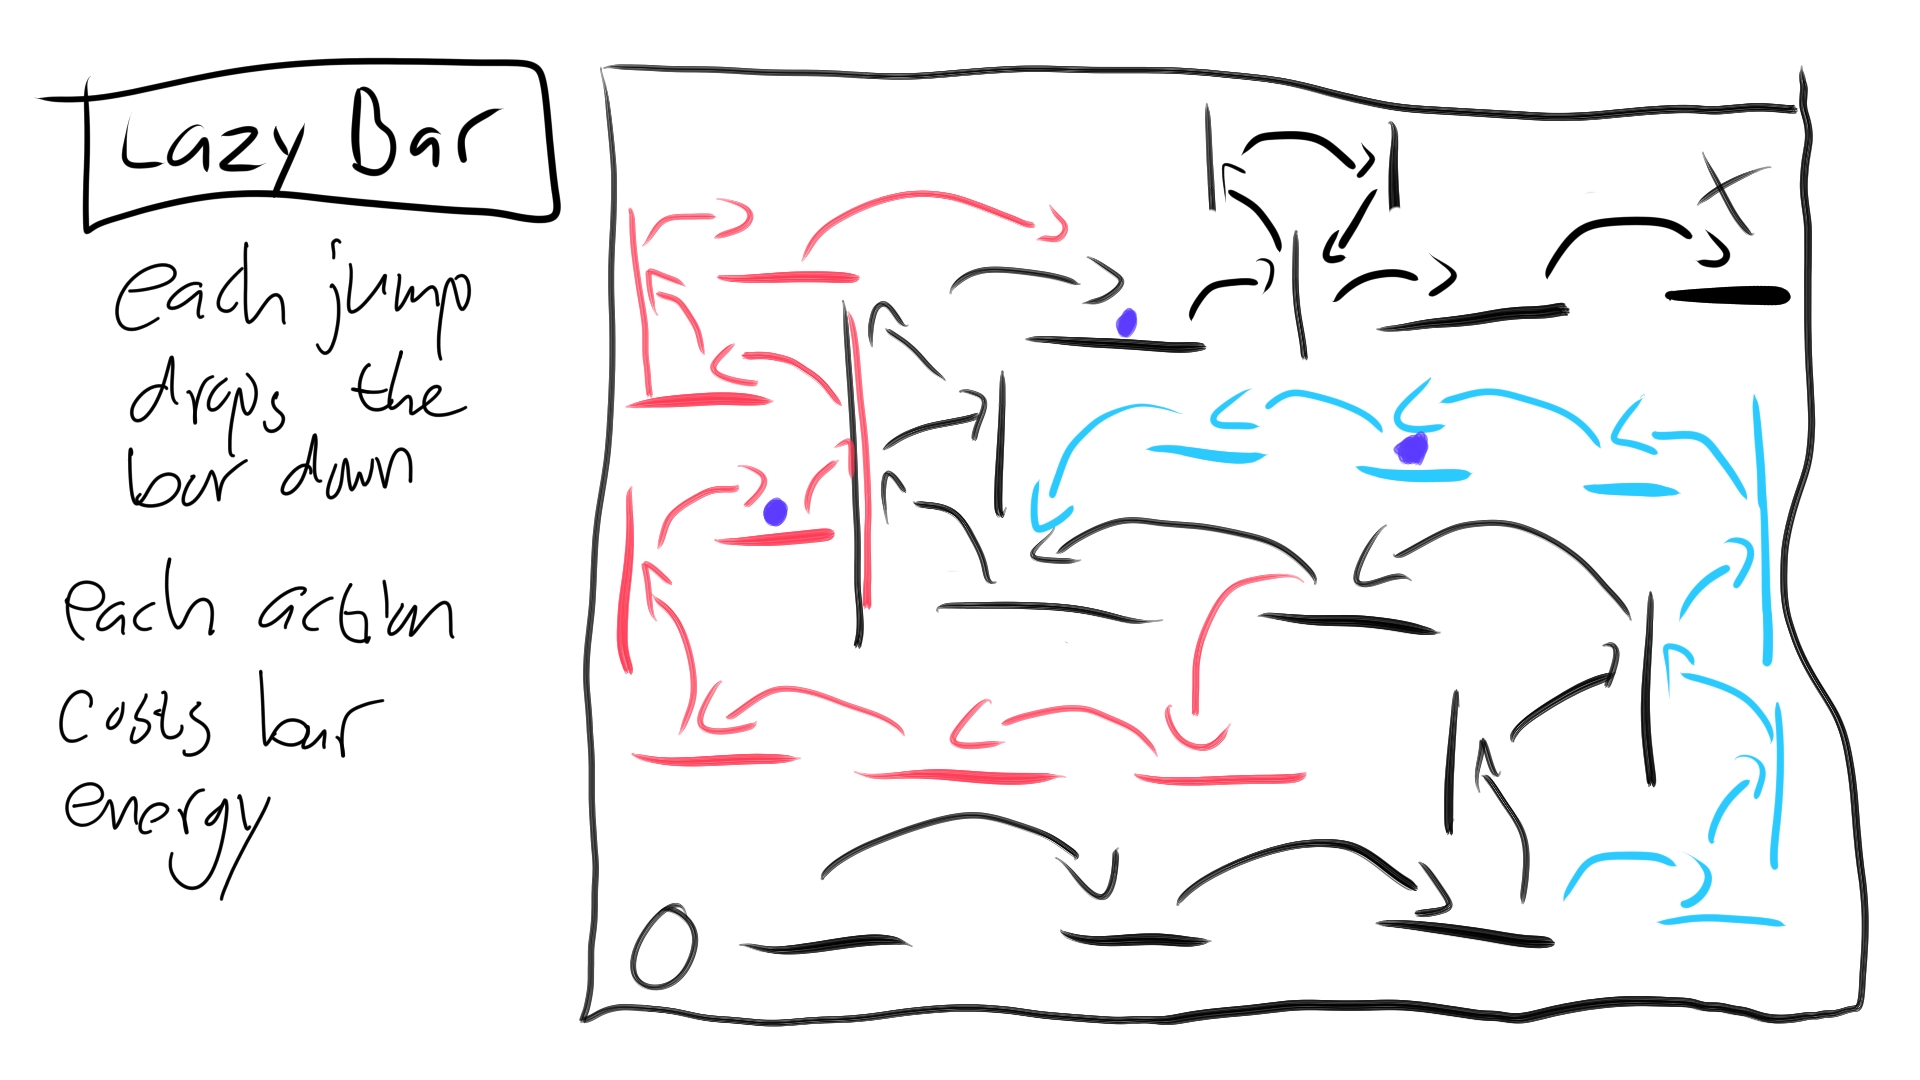 Lazy Bar
each jump
drops the
bar down
each action
costs bar
energy